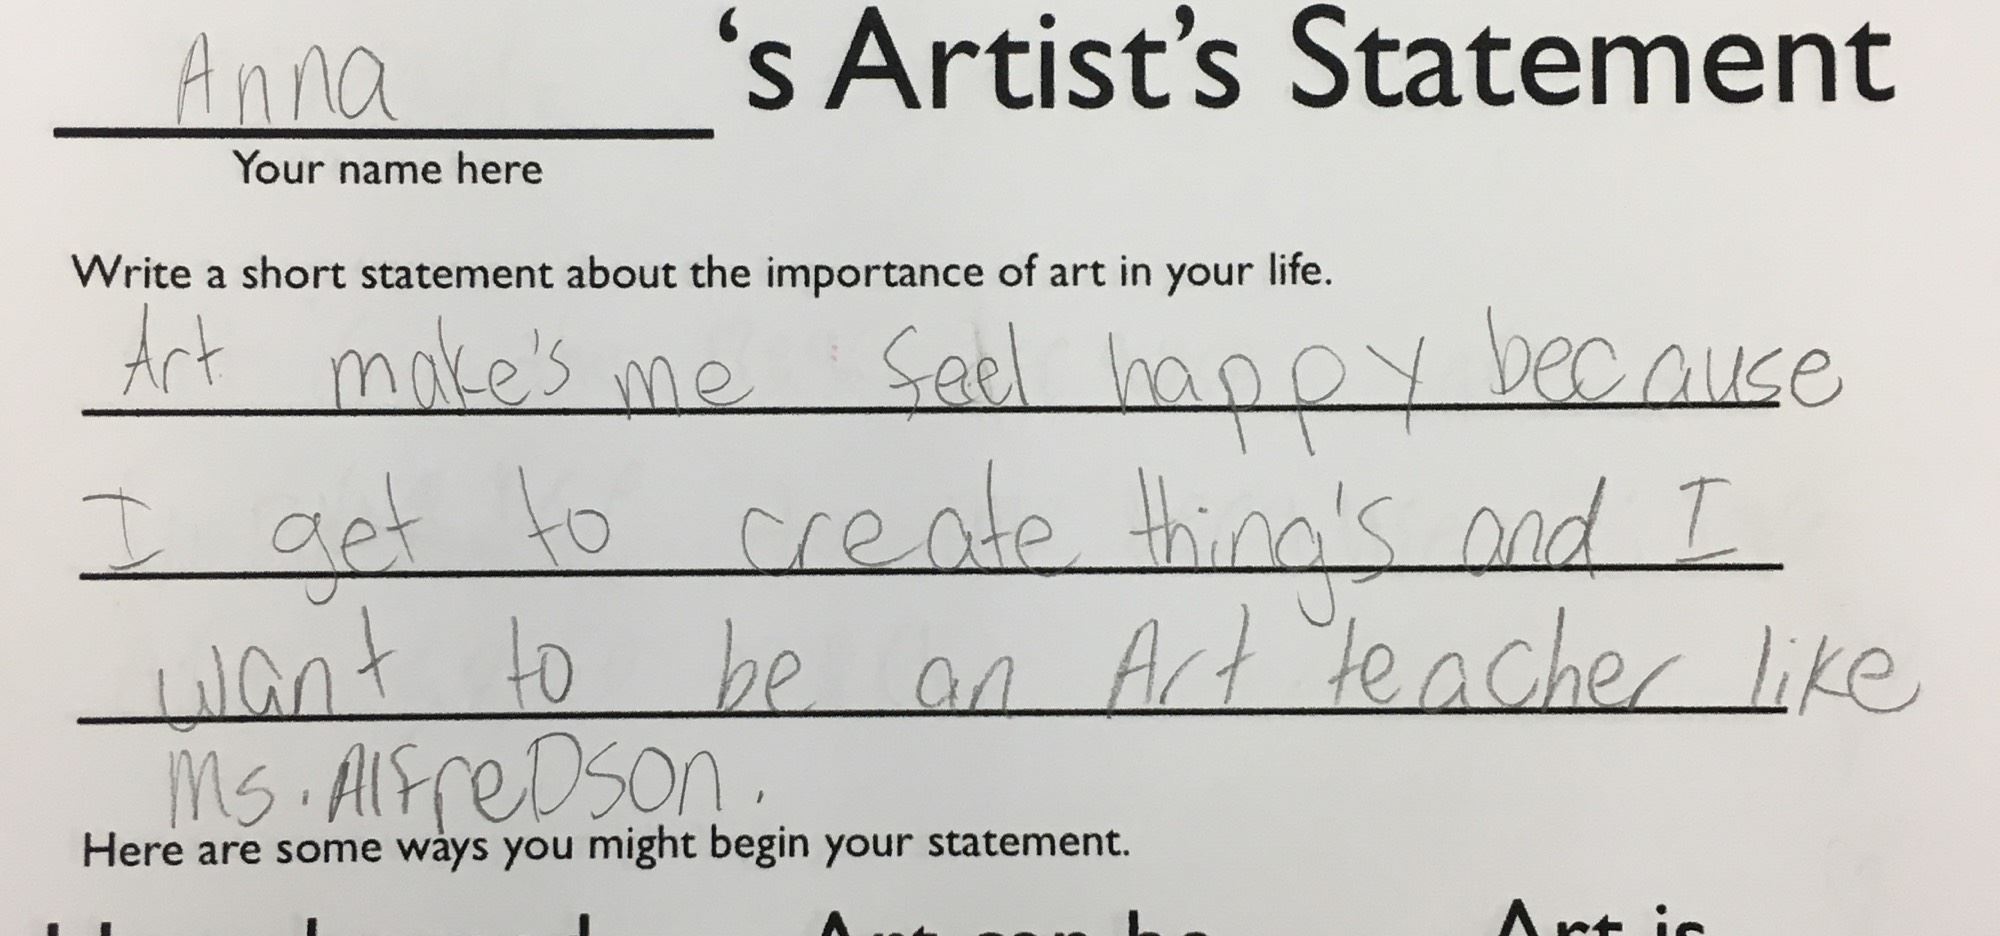 Anna 's Artist's Statement
Your name here
Write a short statement about the importance of art in your life.
Art make's me feel happy because
I get to create thing's and I
want to be an Art teacher like
Ms. AlfreDson.
Here are some ways you might begin your statement.
Art can be Art is